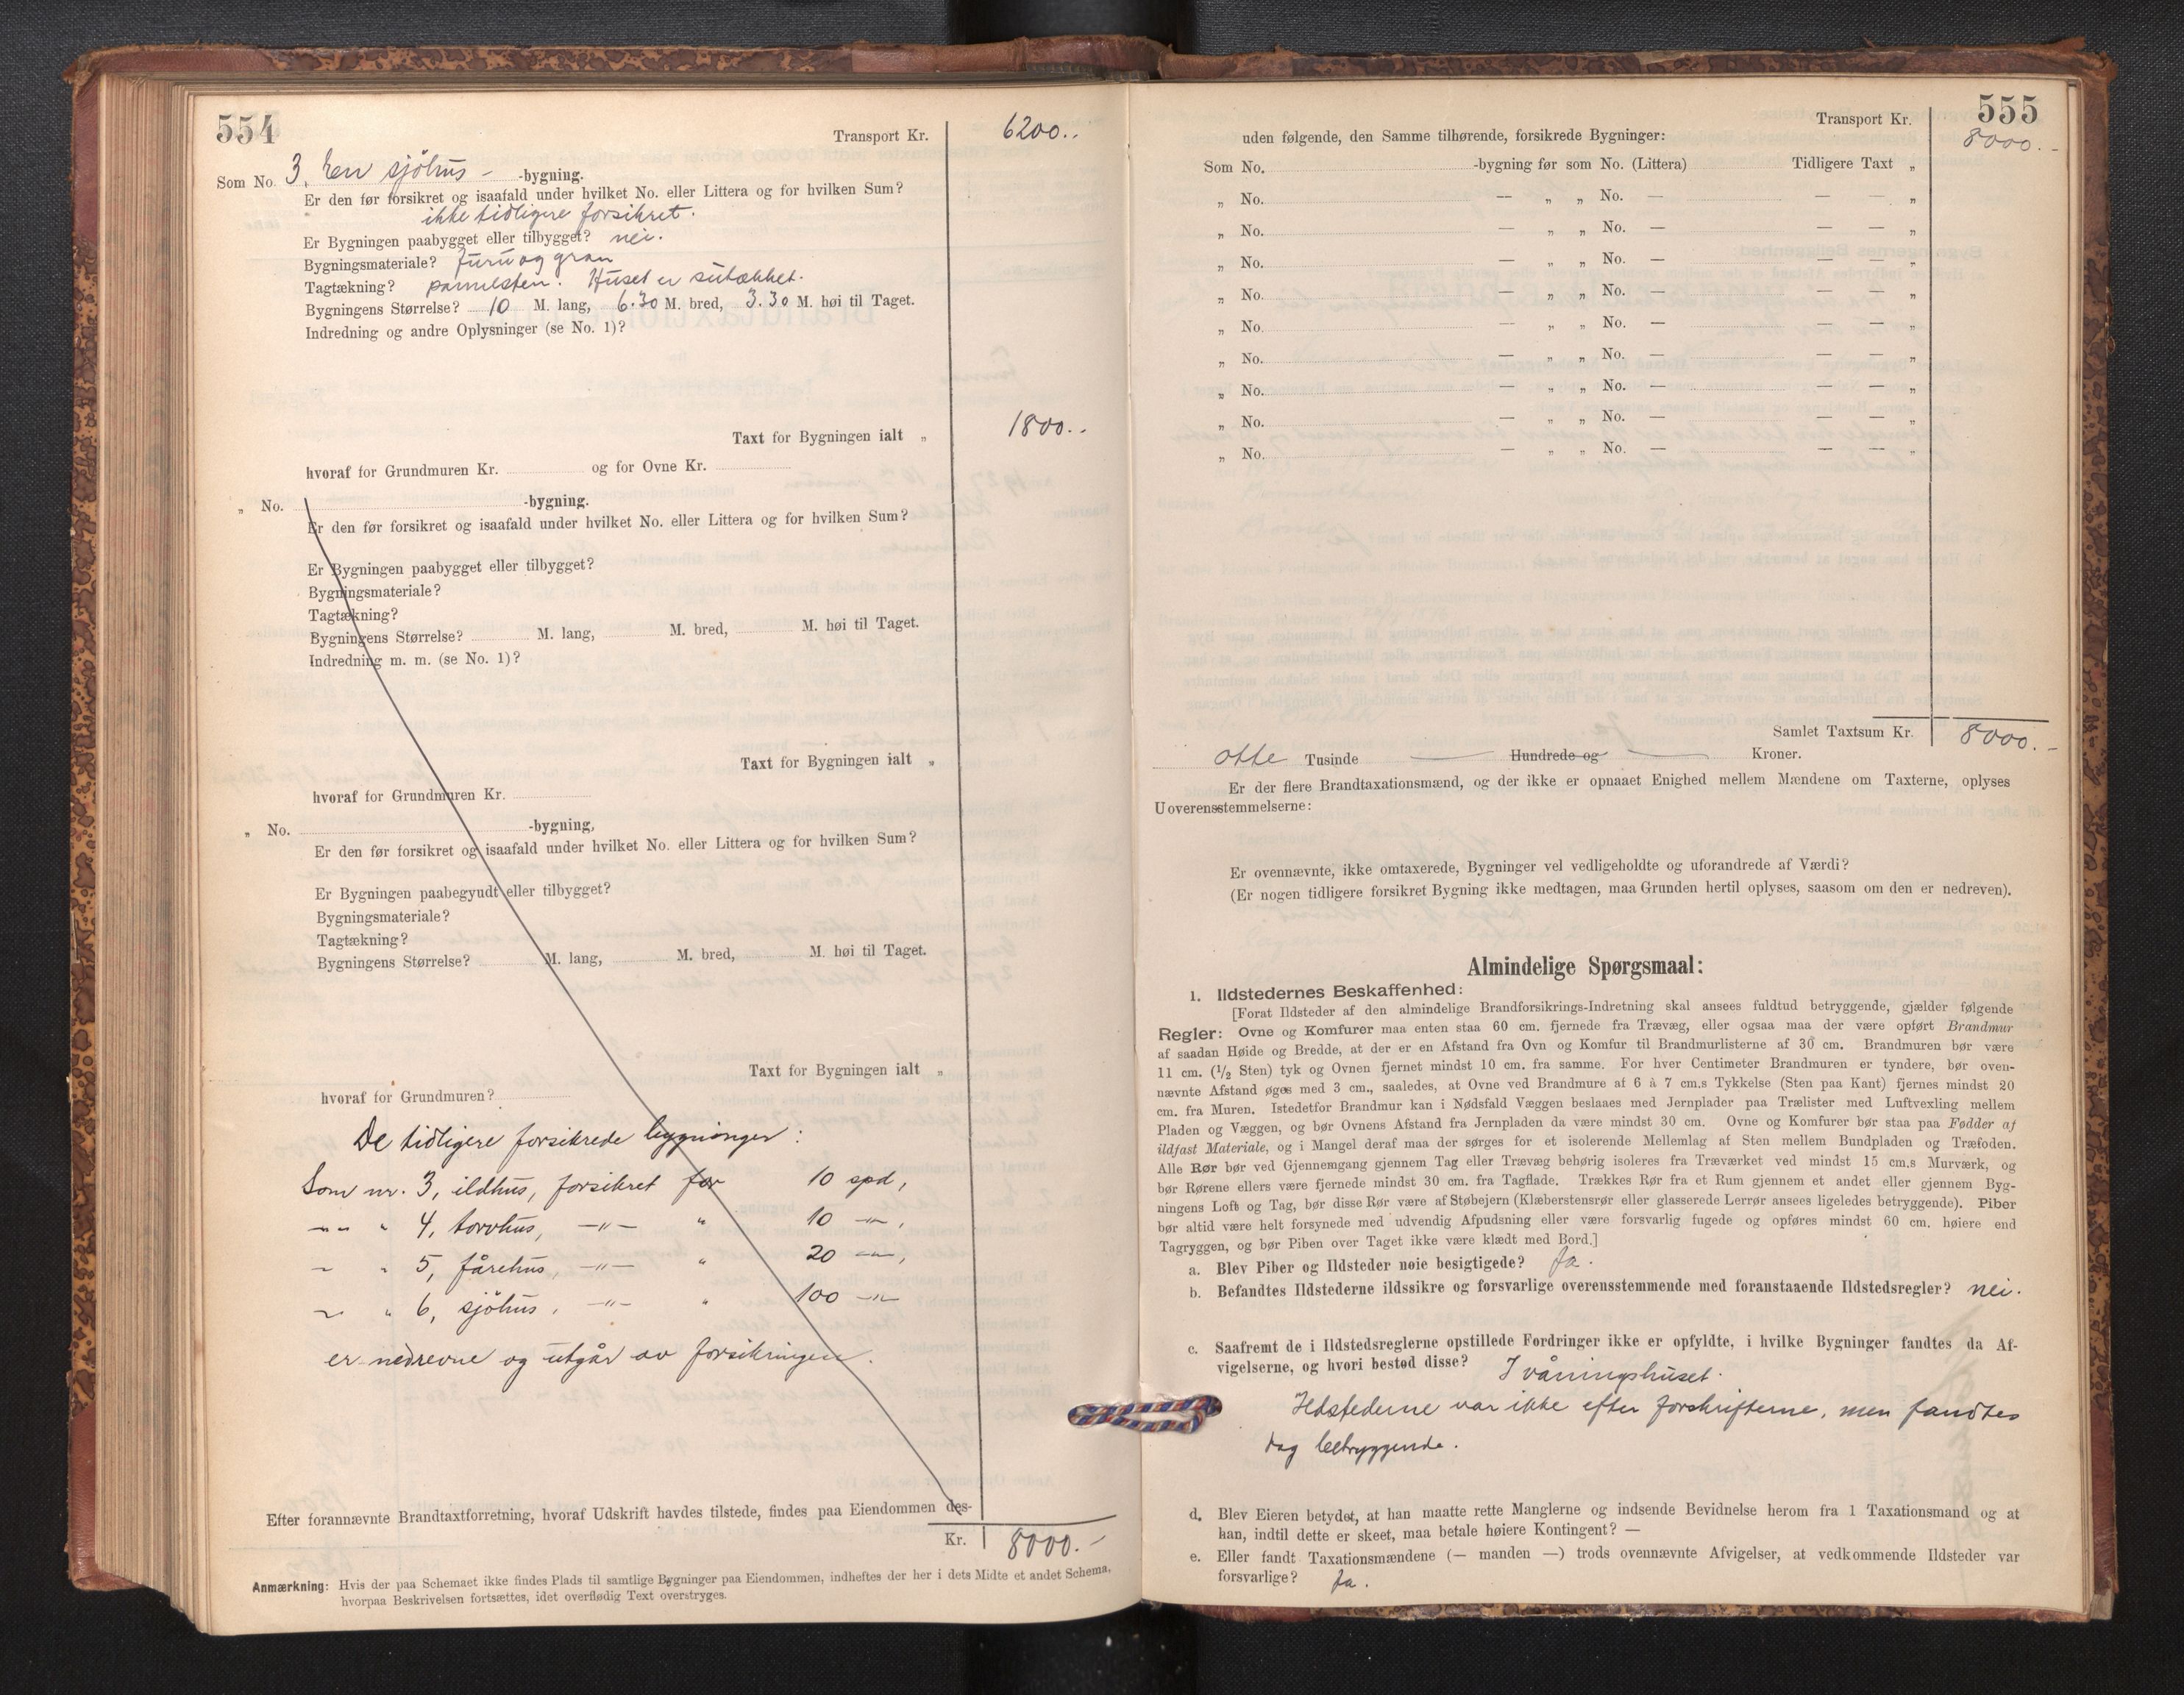 554
Transport Kr. 6200..
Som No. 3, En sjöhus - -bygning.
Er den før forsikret og isaafald under hvilket No. eller Littera og for hvilken Sum?
ikke tidligere forsikret.
Er Bygningen paabygget eller tilbygget? nei.
Bygningsmateriale? furu og gran
Tagtækning? pannesten. Huset er sutækket.
Bygningens Størrelse? 10 M. lang, 6.30 M. bred, 3.30 M. høi til Taget.
Indredning og andre Oplysninger (se No. 1)?
Taxt for Bygningen ialt „ 1800..
hvoraf for Grundmuren Kr. og for Ovne Kr.
„ No. -bygning.
Er den før forsikret og isaafald under hvilket No. eller Littera og for hvilken Sum?
Er Bygningen paabygget eller tilbygget?
Bygningsmateriale?
Tagtækning?
Bygningens Størrelse? M. lang, M. bred, M. høi til Taget.
Indredning m. m. (se No. 1)?
Taxt for Bygningen ialt „
hvoraf for Grundmuren Kr.
„ No. -bygning,
Er den før forsikret og isaafald under hvilket No. eller Littera og for hvilken Sum?
Er Bygningen paabegyndt eller tilbygget?
Bygningsmateriale?
Tagtækning?
Bygningens Størrelse? M. lang, M. bred, M. høi til Taget.
Taxt for Bygningen ialt „
hvoraf for Grundmuren?
De tidligere forsikrede bygninger:
Som nr. 3, ildhus, forsikret for 10 spd,
-„- „ 4, torvhus, -„- „ 10 -„-,
- „ 5, fårehus, -„- „ 20 -„-,
- „ 6, sjöhus, -„- „ 100 -„-
er nedrevne og utgår av forsikringen.
Efter forannævnte Brandtaxtforretning, hvoraf Udskrift havdes tilstede, findes paa Eiendommen des-
Kr. 8000.-
Anmærkning: Hvis der paa Schemaet ikke findes Plads til samtlige Bygninger paa Eiendommen, indheftes der her i dets Midte et andet Schema,
hvorpaa Beskrivelsen fortsættes, idet overflødig Text overstryges.
555
Transport Kr. 8000.-
uden følgende, den Samme tilhørende, forsikrede Bygninger:
Som No. -bygning før som No. (Littera) Tidligere Taxt „
„ No. — „ „ No. — — — „
„ No. — „ „ No. — — — „
„ No. — „ „ No. — — — „
„ No. — „ „ No. — — — „
„ No. — „ „ No. — — — „
„ No. — „ „ No. — — — „
„ No. — „ „ No. — — — „
„ No. — „ „ No. — — — „
„ No. — „ „ No. — — — „
Samlet Taxtsum Kr. 8000.-
otte Tusinde — Hundrede og — Kroner.
Er der flere Brandtaxationsmænd, og der ikke er opnaaet Enighed mellem Mændene om Taxterne, oplyses
Uoverensstemmelserne:
Er ovennævnte, ikke omtaxerede, Bygninger vel vedligeholdte og uforandrede af Værdi?
(Er nogen tidligere forsikret Bygning ikke medtagen, maa Grunden hertil oplyses, saasom om den er nedreven).
Almindelige Spørgsmaal:
1. Ildstedernes Beskaffenhed:
[Forat Ildsteder af den almindelige Brandforsikrings-Indretning skal ansees fuldtud betryggende, gjælder følgende
Regler: Ovne og Komfurer maa enten staa 60 cm. fjernede fra Trævæg, eller ogsaa maa der være opført Brandmur
af saadan Høide og Bredde, at der er en Afstand fra Ovn og Komfur til Brandmurlisterne af 30 cm. Brandmuren bør være
11 cm. (1/2 Sten) tyk og Ovnen fjernet mindst 10 cm. fra samme. For hver Centimeter Brandmuren er tyndere, bør oven-
nævnte Afstand øges med 3 cm., saaledes, at Ovne ved Brandmure af 6 à 7 cm.s Tykkelse (Sten paa Kant) fjernes mindst 20
cm. fra Muren. Istedetfor Brandmur kan i Nødsfald Væggen beslaaes med Jernplader paa Trælister med Luftvexling mellem
Pladen og Væggen, og bør Ovnens Afstand fra Jernpladen da være mindst 30 cm. Ovne og Komfurer bør staa paa Fødder af
ildfast Materiale, og i Mangel deraf maa der sørges for et isolerende Mellemlag af Sten mellem Bundpladen og Træfoden.
Alle Rør bør ved Gjennemgang gjennem Tag eller Trævæg behørig isoleres fra Træværket ved mindst 15 cm.s Murværk, og
bør Rørene ellers være fjernede mindst 30 cm. fra Tagflade. Trækkes Rør fra et Rum gjennem et andet eller gjennem Byg-
ningens Loft og Tag, bør disse Rør være af Støbejern (Klæberstensrør eller glasserede Lerrør ansees ligeledes betryggende). Piber
bør altid være helt forsynede med udvendig Afpudsning eller være forsvarlig fugede og opføres mindst 60 cm. høiere end
Tagryggen, og bør Piben over Taget ikke være klædt med Bord.]
a. Blev Piber og Ildsteder nøie besigtigede? Ja.
b. Befandtes Ildstederne ildssikre og forsvarlige overensstemmende med foranstaaende Ildstedsregler? nei.
c. Saafremt de i Ildstedsreglerne opstillede Fordringer ikke er opfyldte, i hvilke Bygninger fandtes da Af-
vigelserne, og hvori bestod disse? I våningshuset.
Ildstederne var ikke efter forskrifterne, men fandtes
dog betryggende.
d. Blev Eieren betydet, at han maatte rette Manglerne og indsende Bevidnelse herom fra 1 Taxationsmand og at
han, indtil dette er skeet, maa betale høiere Kontingent? —
e. Eller fandt Taxationsmændene (— manden —) trods ovennævnte Afvigelser, at vedkommende Ildsteder var
forsvarlige? Ja.